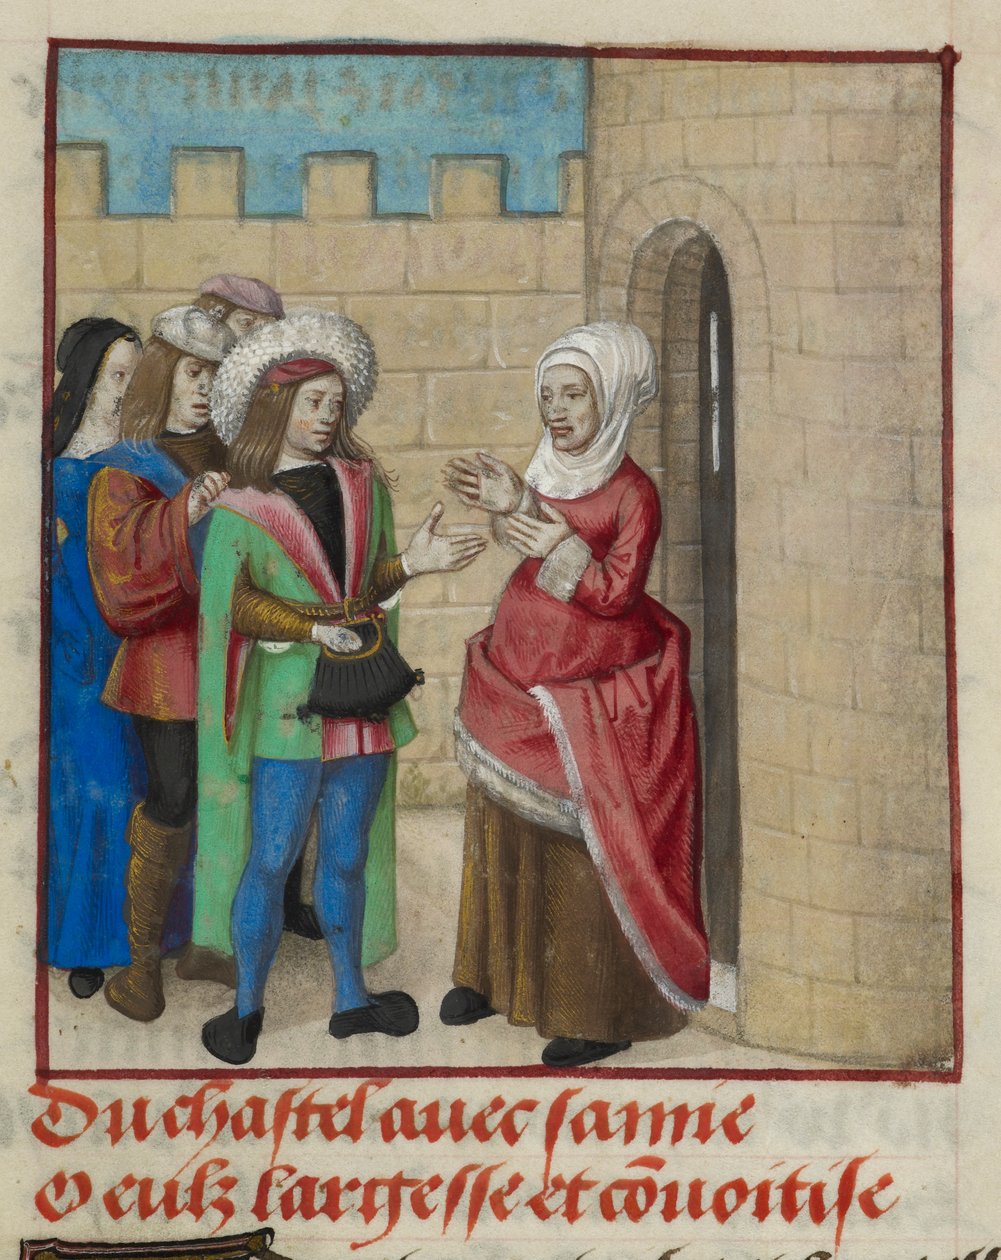 Du chastel auec samie
O eulz largesse et cõuoitise